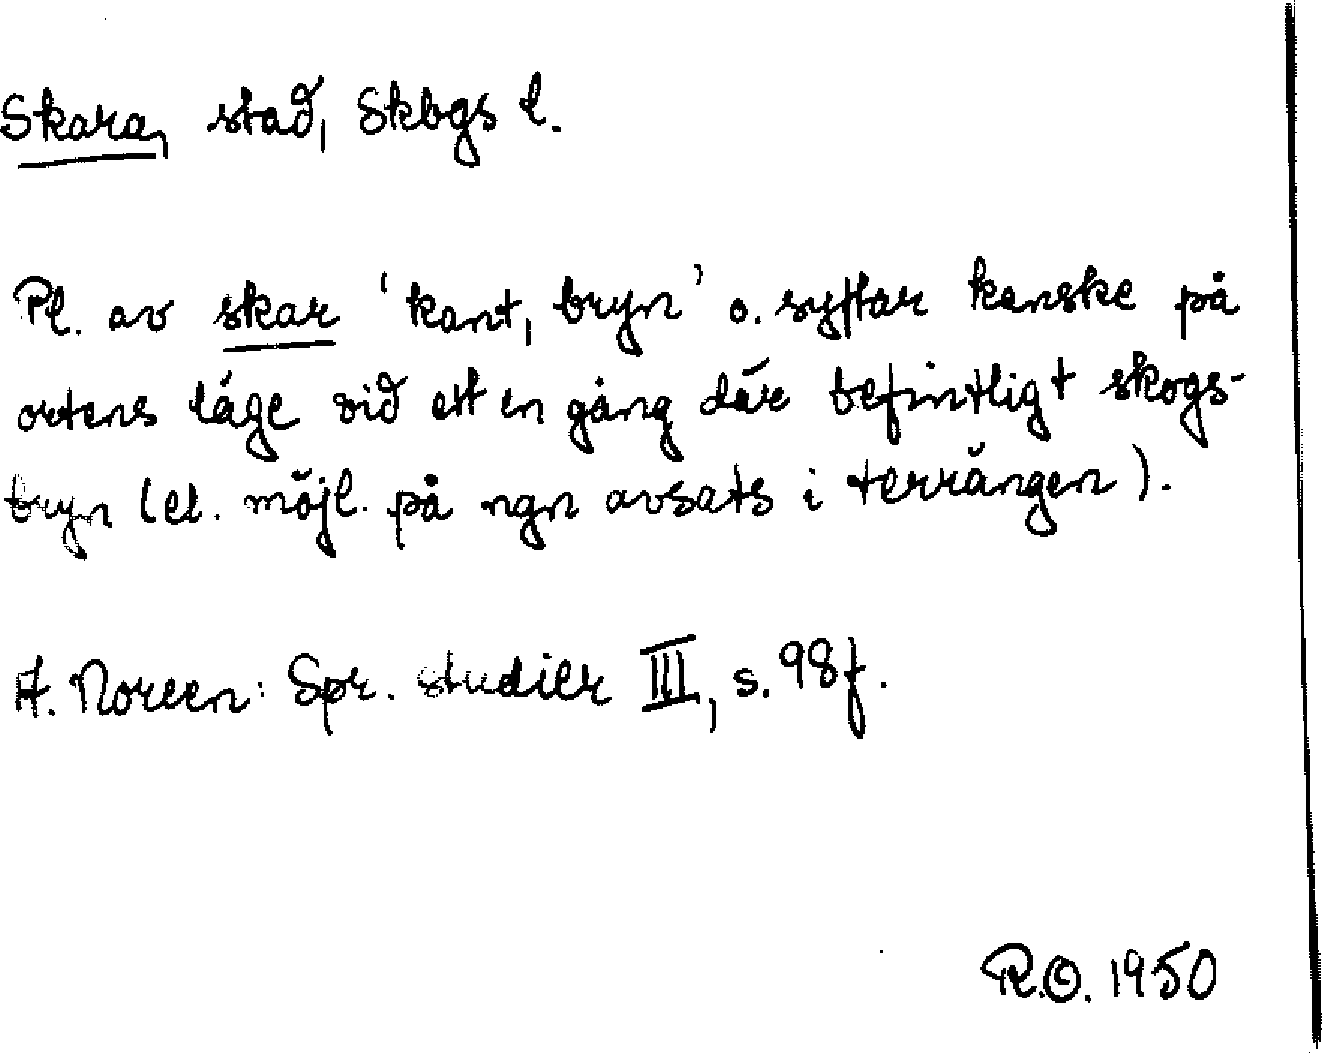 Skara, stad, Skbgs l.
Pl. av skar 'kant, bryn' o. syftar kanske på
ortens läge vid ett en gång där befintligt skogs-
bryn (el. möjl. på ngn avsats i terrängen).
A. Noreen: Spr. studier III, s. 98 f.
R.O. 1950